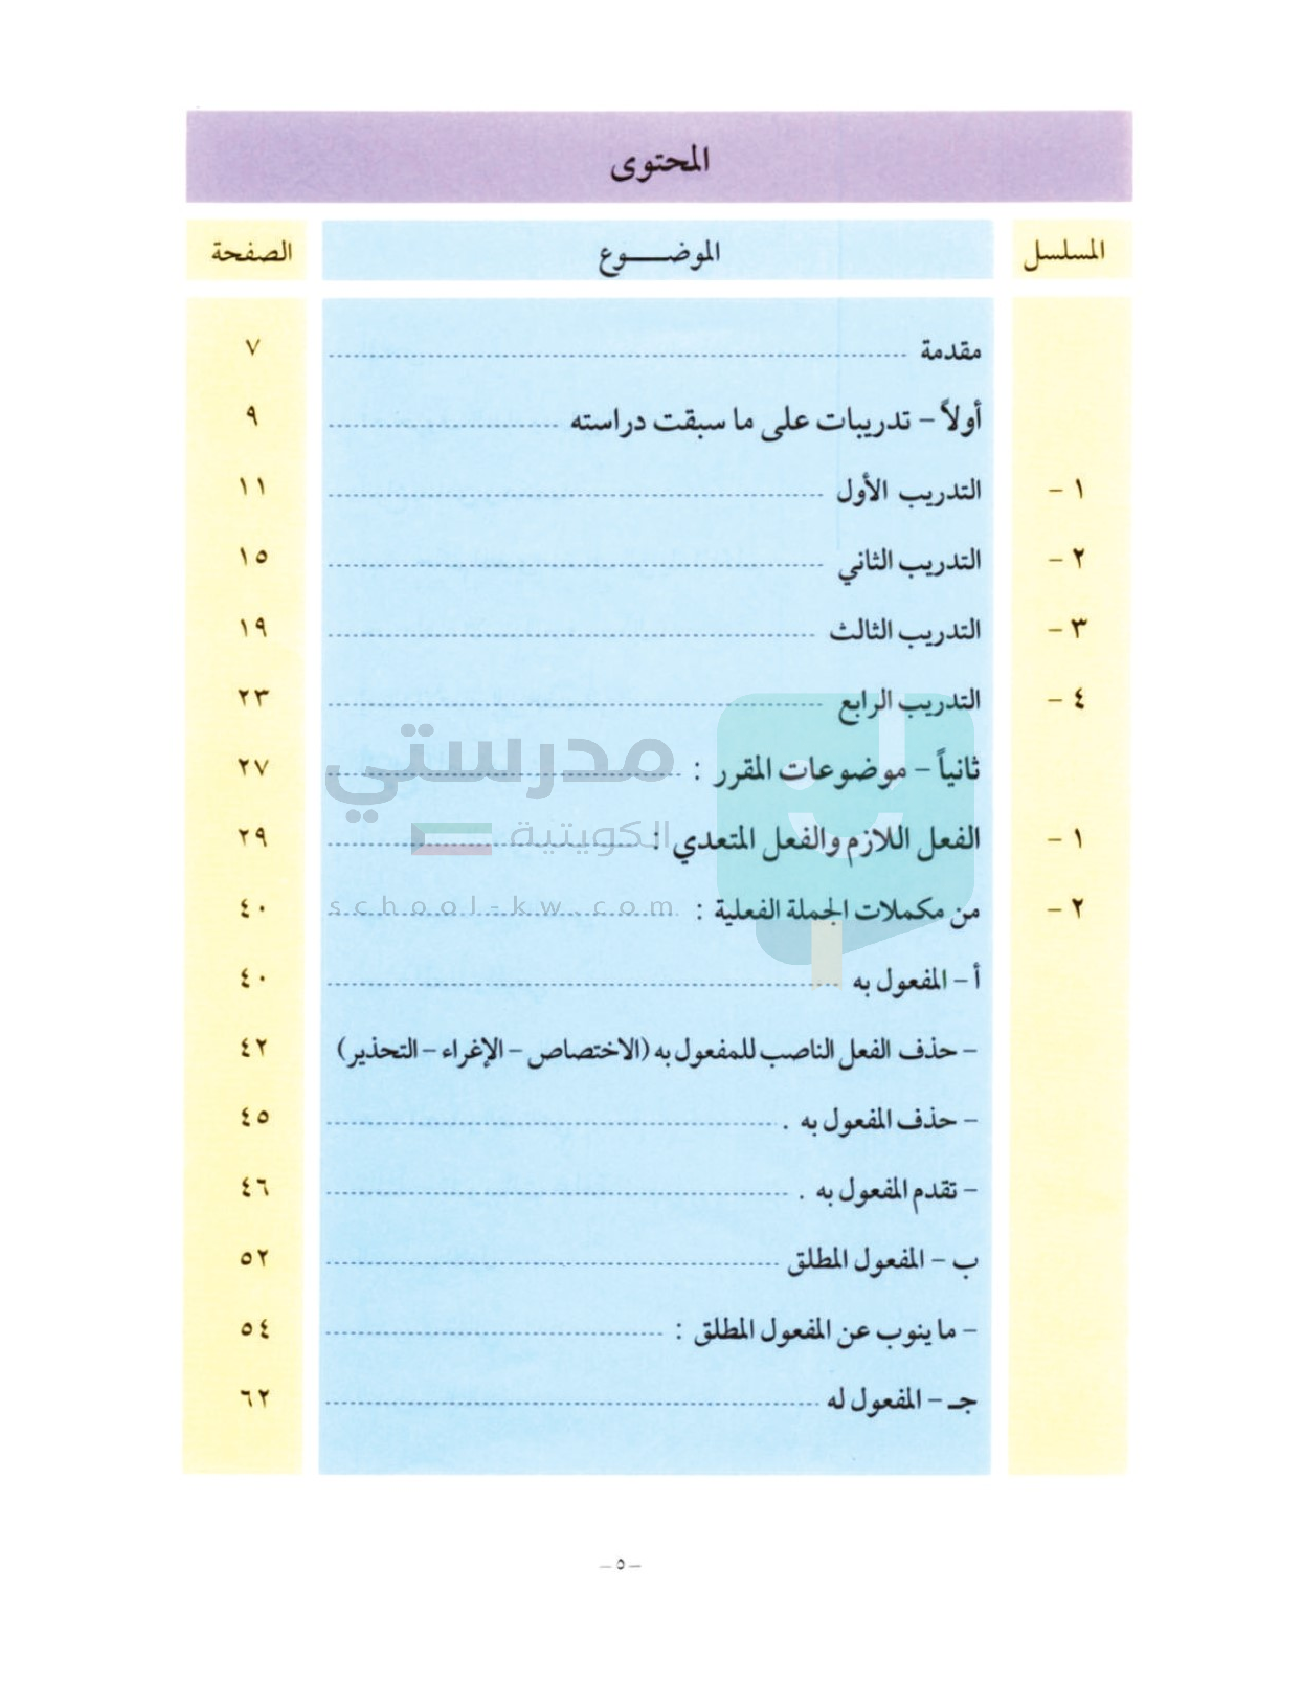 المحتوى
المسلسل الموضـــوع الصفحة
مقدمة ٧
أولاً – تدريبات على ما سبقت دراسته ٩
١ – التدريب الأول ١١
٢ – التدريب الثاني ١٥
٣ – التدريب الثالث ١٩
٤ – التدريب الرابع ٢٣
ثانياً – موضوعات المقرر : ٢٧
مدرستي
١ – الفعل اللازم والفعل المتعدي : ٢٩
الكويتية
٢ – من مكملات الجملة الفعلية : ٤٠
school-kw.com
أ – المفعول به ٤٠
– حذف الفعل الناصب للمفعول به (الاختصاص – الإغراء – التحذير) ٤٢
– حذف المفعول به . ٤٥
– تقدم المفعول به . ٤٦
ب – المفعول المطلق ٥٢
– ما ينوب عن المفعول المطلق : ٥٤
جـ – المفعول له ٦٢
– ٥ –